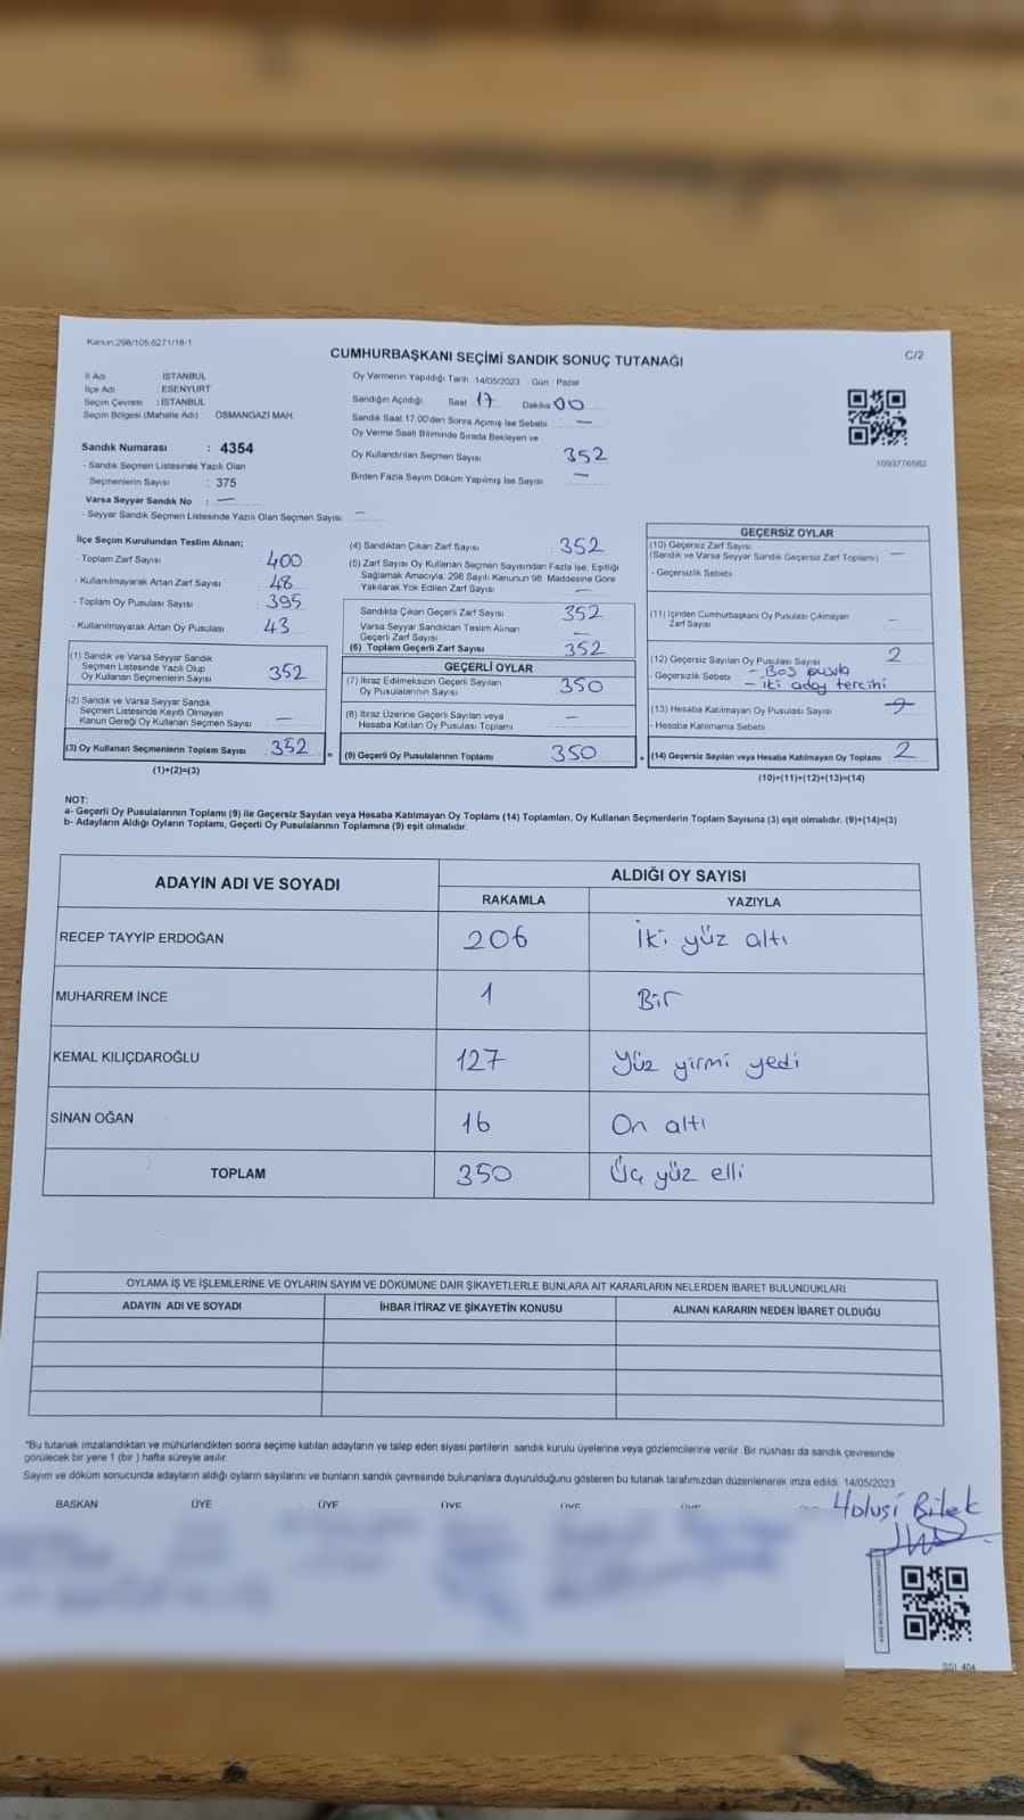 Kanun:298/105;6271/18-1
C/2
CUMHURBAŞKANI SEÇİMİ SANDIK SONUÇ TUTANAĞI
İl Adı : İSTANBUL
İlçe Adı : ESENYURT
Seçim Çevresi : İSTANBUL
Seçim Bölgesi (Mahalle Adı) : OSMANGAZİ MAH.
Sandık Numarası : 4354
- Sandık Seçmen Listesinde Yazılı Olan
Seçmenlerin Sayısı : 375
Varsa Seyyar Sandık No : —
- Seyyar Sandık Seçmen Listesinde Yazılı Olan Seçmen Sayısı: —
Oy Vermenin Yapıldığı Tarih : 14/05/2023 Gün : Pazar
Sandığın Açıldığı Saat 17 Dakika 00
Sandık Saat 17.00'den Sonra Açmış İse Sebebi : —
Oy Verme Saati Bitiminde Sırada Bekleyen ve
Oy Kullandırılan Seçmen Sayısı 352
Birden Fazla Sayım Döküm Yapılmış İse Sayısı —
1093776582
İlçe Seçim Kurulundan Teslim Alınan;
- Toplam Zarf Sayısı : 400
- Kullanılmayarak Artan Zarf Sayısı : 48
- Toplam Oy Pusulası Sayısı : 395
- Kullanılmayarak Artan Oy Pusulası : 43
(1) Sandık ve Varsa Seyyar Sandık
Seçmen Listesinde Yazılı Olup
Oy Kullanan Seçmenlerin Sayısı 352
(2) Sandık ve Varsa Seyyar Sandık
Seçmen Listesinde Kayıtlı Olmayan
Kanun Gereği Oy Kullanan Seçmen Sayısı —
(3) Oy Kullanan Seçmenlerin Toplam Sayısı 352
(1)+(2)=(3)
(4) Sandıktan Çıkan Zarf Sayısı 352
(5) Zarf Sayısı Oy Kullanan Seçmen Sayısından Fazla İse, Eşitliği
Sağlamak Amacıyla, 298 Sayılı Kanunun 98. Maddesine Göre
Yakılarak Yok Edilen Zarf Sayısı —
Sandıkta Çıkan Geçerli Zarf Sayısı 352
Varsa Seyyar Sandıktan Teslim Alınan
Geçerli Zarf Sayısı —
(6) Toplam Geçerli Zarf Sayısı 352
GEÇERLİ OYLAR
(7) İtiraz Edilmeksizin Geçerli Sayılan
Oy Pusulalarının Sayısı 350
(8) İtiraz Üzerine Geçerli Sayılan veya
Hesaba Katılan Oy Pusulası Toplamı —
(9) Geçerli Oy Pusulalarının Toplamı 350
GEÇERSİZ OYLAR
(10) Geçersiz Zarf Sayısı
(Sandık ve Varsa Seyyar Sandık Geçersiz Zarf Toplamı) —
- Geçersizlik Sebebi
(11) İçinden Cumhurbaşkanı Oy Pusulası Çıkmayan
Zarf Sayısı —
(12) Geçersiz Sayılan Oy Pusulası Sayısı 2
- Geçersizlik Sebebi - Boş pusula
- iki aday tercihi
(13) Hesaba Katılmayan Oy Pusulası Sayısı
- Hesaba Katılmama Sebebi
(14) Geçersiz Sayılan veya Hesaba Katılmayan Oy Toplamı 2
(10)+(11)+(12)+(13)=(14)
NOT:
a- Geçerli Oy Pusulalarının Toplamı (9) ile Geçersiz Sayılan veya Hesaba Katılmayan Oy Toplamı (14) Toplamları, Oy Kullanan Seçmenlerin Toplam Sayısına (3) eşit olmalıdır. (9)+(14)=(3)
b- Adayların Aldığı Oyların Toplamı, Geçerli Oy Pusulalarının Toplamına (9) eşit olmalıdır.
ADAYIN ADI VE SOYADI
ALDIĞI OY SAYISI
RAKAMLA YAZIYLA
RECEP TAYYİP ERDOĞAN 206 İki yüz altı
MUHARREM İNCE 1 Bir
KEMAL KILIÇDAROĞLU 127 Yüz yirmi yedi
SİNAN OĞAN 16 On altı
TOPLAM 350 Üç yüz elli
OYLAMA İŞ VE İŞLEMLERİNE VE OYLARIN SAYIM VE DÖKÜMÜNE DAİR ŞİKAYETLERLE BUNLARA AİT KARARLARIN NELERDEN İBARET BULUNDUKLARI
ADAYIN ADI VE SOYADI İHBAR İTİRAZ VE ŞİKAYETİN KONUSU ALINAN KARARIN NEDEN İBARET OLDUĞU
"Bu tutanak imzalandıktan ve mühürlendikten sonra seçime katılan adayların ve talep eden siyasi partilerin sandık kurulu üyelerine veya gözlemcilerine verilir. Bir nüshası da sandık çevresinde
görülecek bir yere 1 (bir ) hafta süreyle asılır.
Sayım ve döküm sonucunda adayların aldığı oyların sayılarını ve bunların sandık çevresinde bulunanlara duyurulduğunu gösteren bu tutanak tarafımızdan düzenlenerek imza edildi. 14/05/2023
BAŞKAN ÜYE ÜYE ÜYE ÜYE ÜYE
Hulusi Bilek